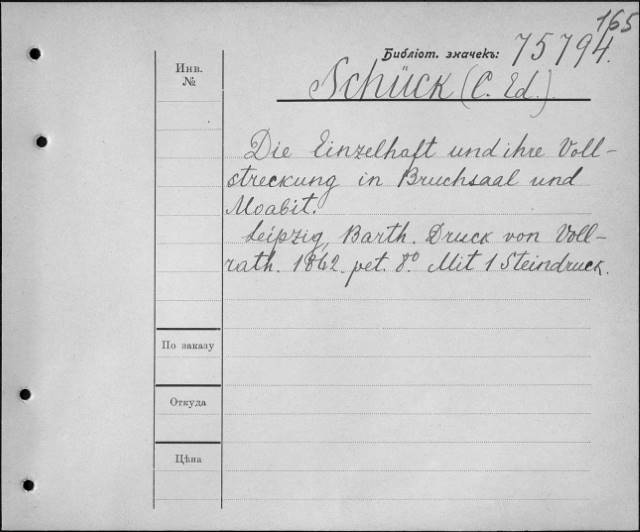 165
Библіот. значекъ: 75794.
Инв.
№
Schück (C. Ed.)
Die Einzelhaft und ihre Voll-
streckung in Bruchsaal und
Moabit.
Leipzig, Barth. Druck von Voll-
rath. 1862. pet. 8° Mit 1 Steindruck.
По заказу
Откуда
Цѣна